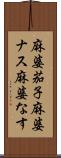 麻婆茄子麻婆
ナス麻婆なす